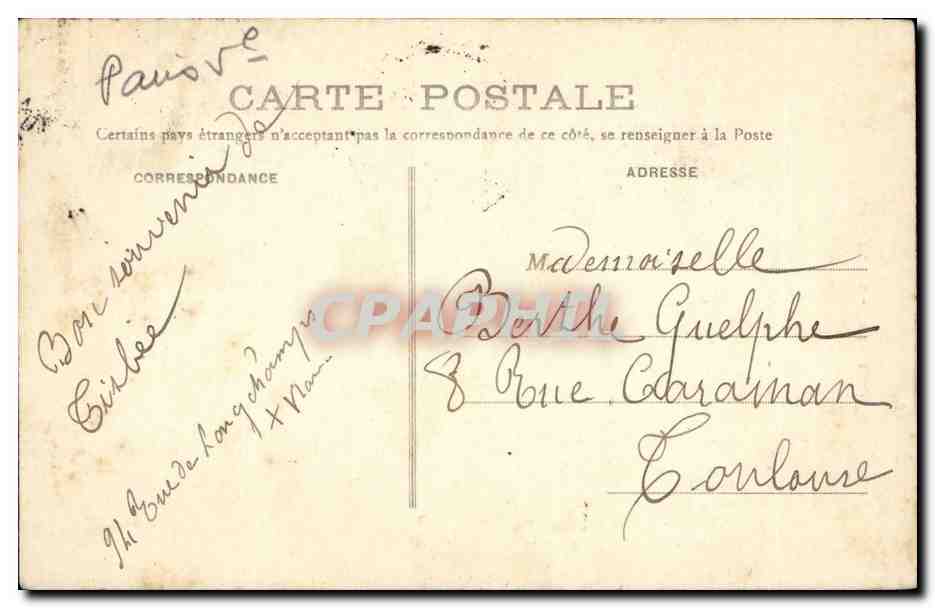 Paris Ve
CARTE POSTALE
Certains pays étrangers n'acceptant pas la correspondance de ce côté, se renseigner à la Poste
CORRESPONDANCE
Bon souvenir de
Tisbée
94 Rue de Longchamps
ADRESSE
Mademoiselle
Berthe Guelphe
8 Rue Caraman
Toulouse
CPAPHIL